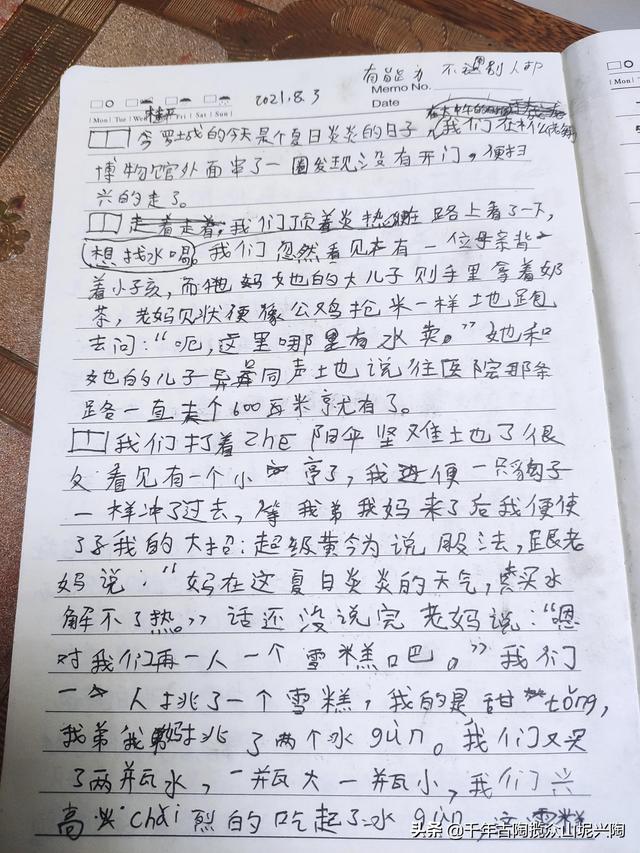 有能力 不遇别人邦
Memo No.
Mon Tue Wed Fri Sat Sun
2021.8.3
Date
的今天是个夏日炎炎的日子,我们在
博物馆外面串了一圈发现没有开门。便扫
兴的走了。
走着走着,我们顶着炎热在路上看了一下,
想找水喝。我们忽然看见有一位母亲背
着小子亥,而她的大儿子则手里拿着奶
茶,老妈见状便像公鸡抢米一样地跑
去问:“呃,这里哪里有水卖。”她和
她的儿子异口同声地说往医院那条
路一直去个600百米亨尤有了。
我们打着zhe阳伞坚难地走了很
久看见有一个小亭了,我便一只豹子
一样冲了过去,等我弟我妈来了后我便使
了了我的大招:超级黄今为说服法,跟老
妈说:“妈在这夏日炎炎的天气,买水
解不了热。”话还没说完老妈说:“嗯
对我们再一人一个雪糕吧。”我们
一人挑了一个雪糕,我的是甜tǒng,
我弟我妈挑了两个水gùn。我们又买
了两瓶水,一瓶大一瓶小,我们兴
高chǎi烈的吃起了水gùn,这雪糕
头条 @千年古陶揽众山坭兴陶